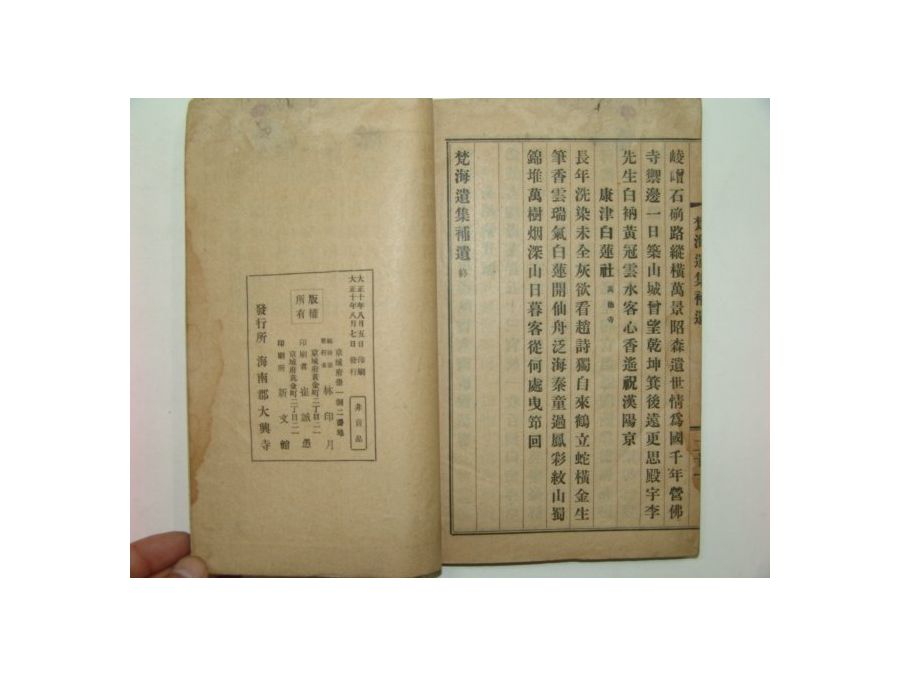 梵海遺集補遺
崚嶒石磵路縱橫萬景昭森遺世情爲國千年營佛
寺禦邊一日築山城曾望乾坤箕後遠更思殿宇李
先生白衲黃冠雲水客心香遙祝漢陽京
康津白蓮社 萬德寺
長年洗染未全灰欲看趙詩獨自來鶴立蛇橫金生
筆香雲瑞氣白蓮開仙舟泛海秦童過鳳彩紋山蜀
錦堆萬樹烟深山日暮客從何處曳節回
梵海遺集補遺 終
大正十年八月五日 印刷
大正十年八月七日 發行
非賣品
版權所有
林印月
京城府黃金町二丁目二一
印刷者 崔誠愚
京城府黃金町二丁目二一
印刷所 新文館
發行所 海南郡大興寺